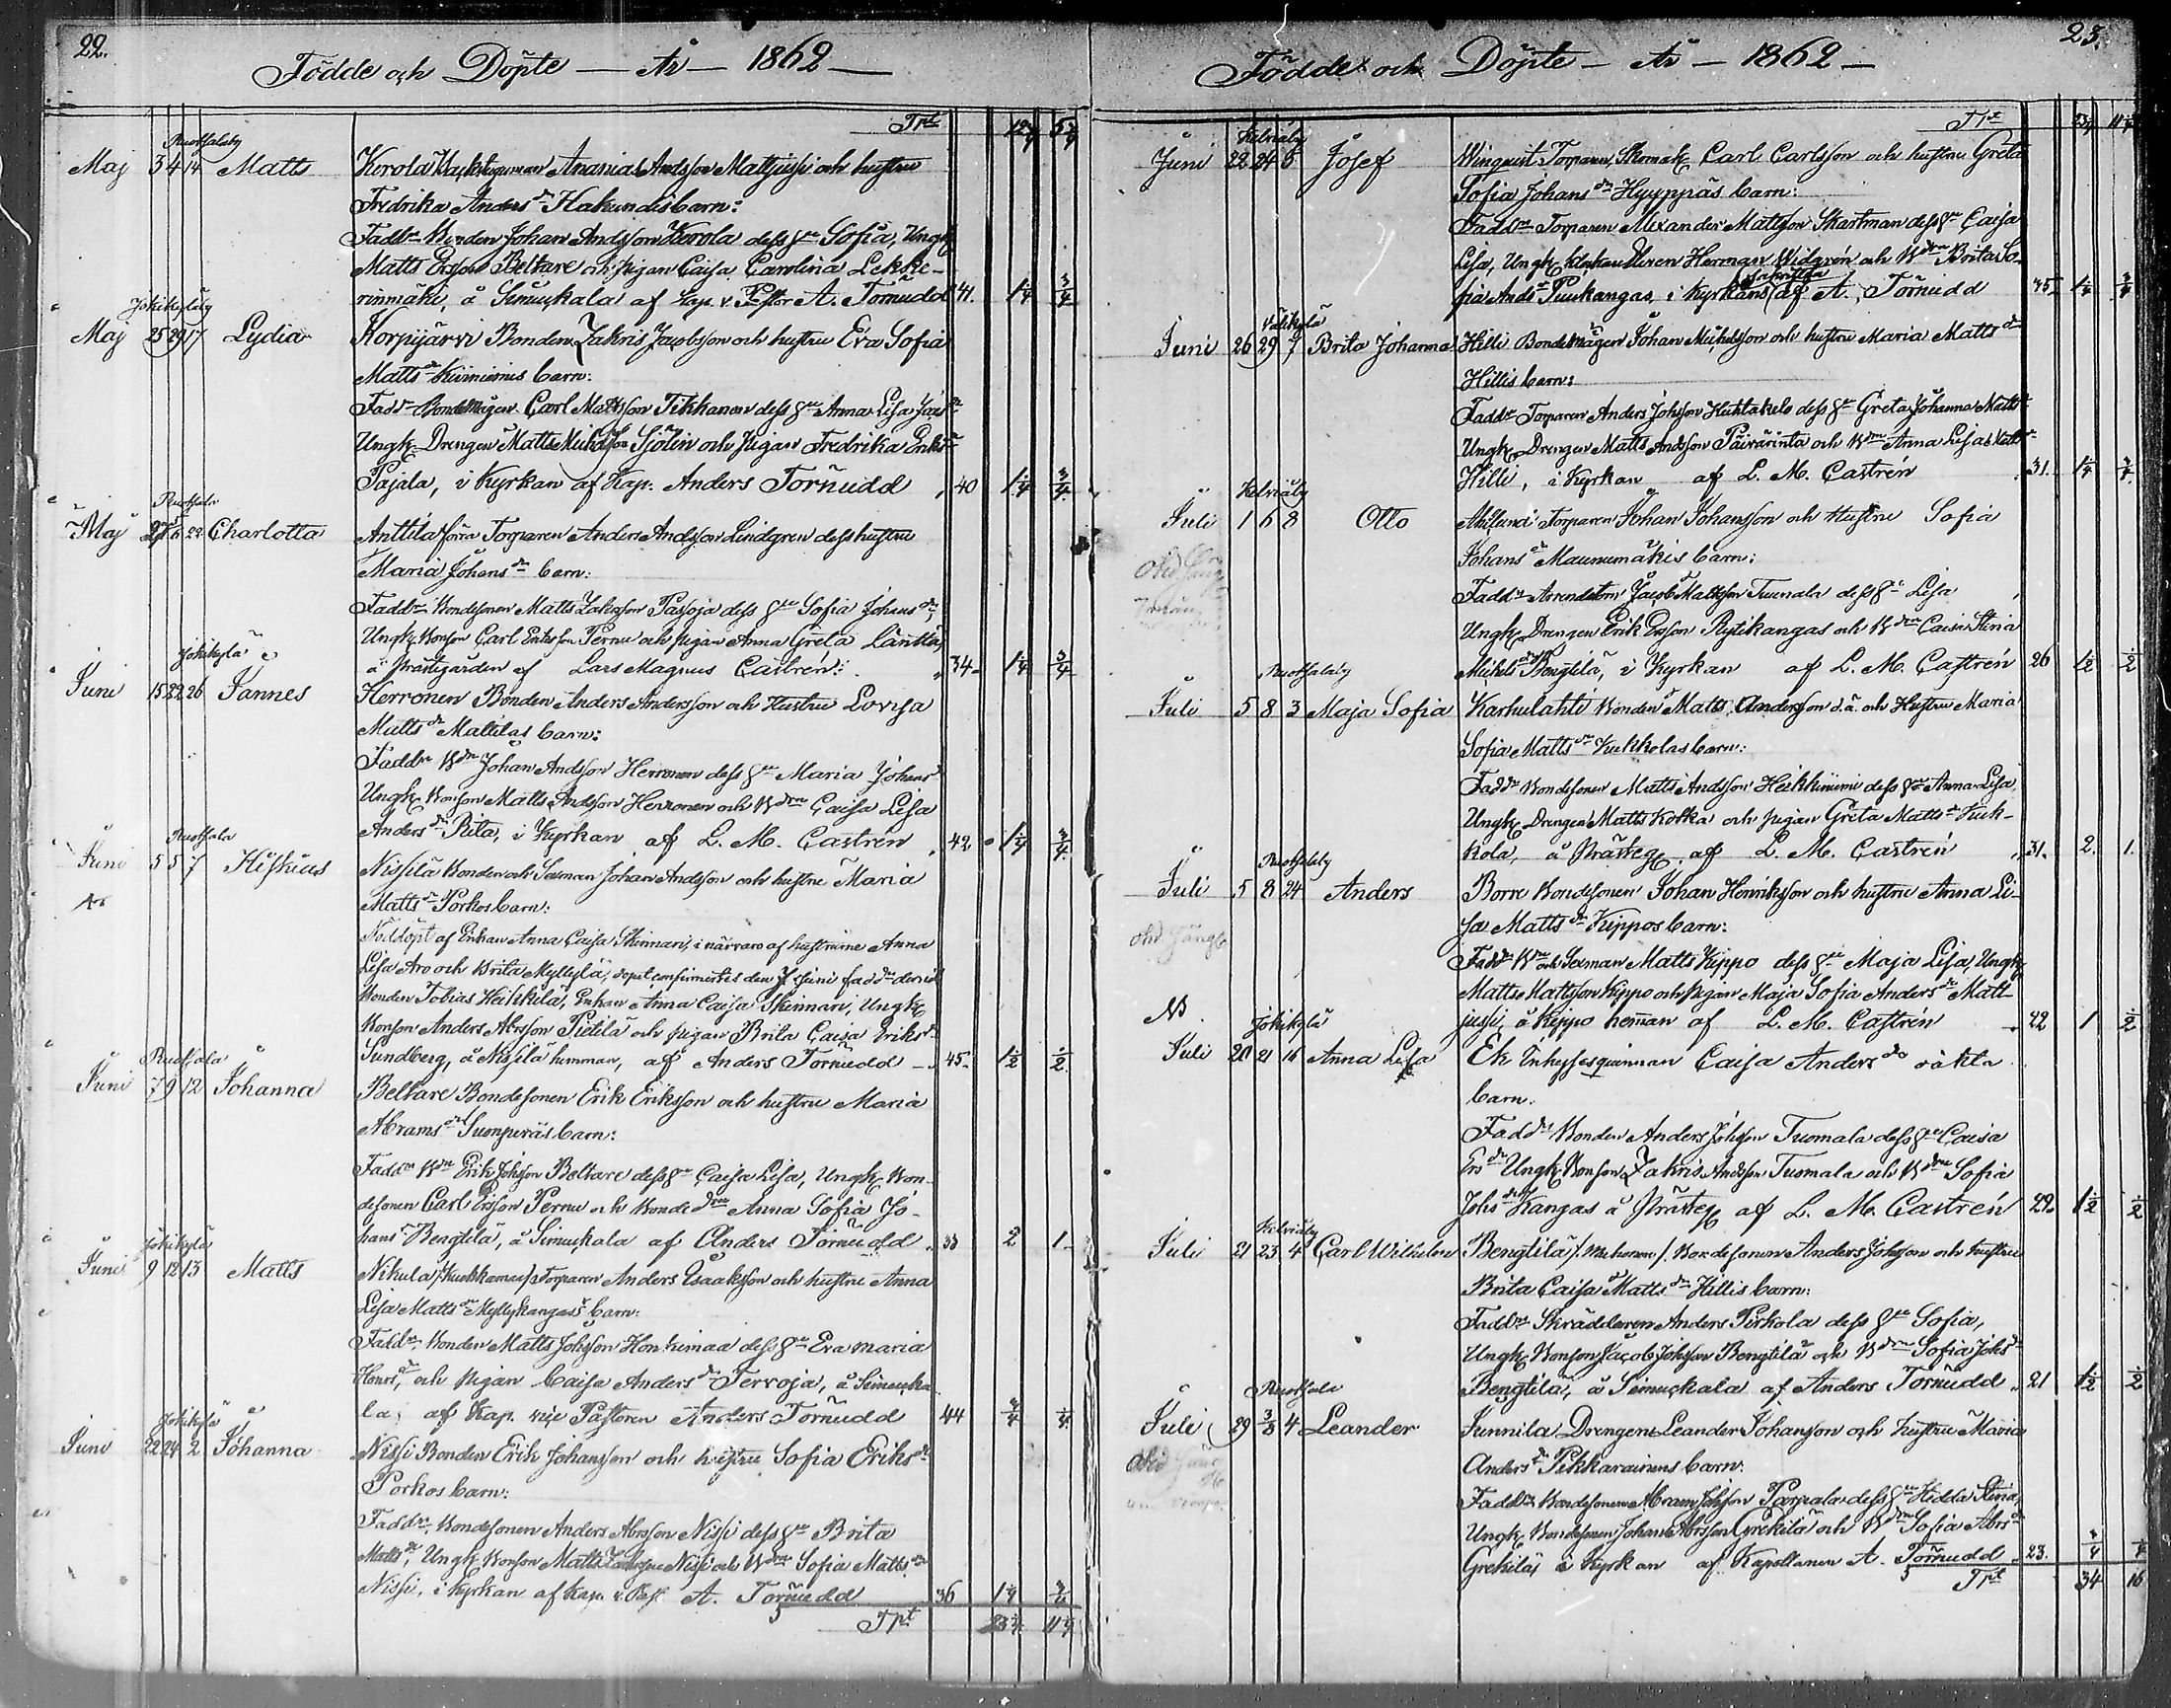 22.
Födde och Döpte — År — 1862 —
Trpt
Ruotsaloby
Maj 3 4 14 Matts Korola Anania Andsson Mattjussi och hustru
Fredrika Anders dr Hakundis barn:
Faddr Bonden Johan Andsson Korola dess hu Sofia, Ungk
Matts Ersson Beltare och Pigan Caisa Carolina Lekke-
rinmäki, å Simuckala af Kap. v. Pastor A. Törnudd 41. 1 1/4 3/4
Jokikyläby
Maj 25 29 17 Lydia Korpijärvi Bonden Zakris Jacobsson och hustru Eva Sofia
Matts dr barn:
Faddr Bondemågen Carl Mattsson Tikkanen dess hu Anna Lisa
Ungk. Drengen Matts Sjölin och Pigan Fredrika Eriks dr
Pajala, i Kyrkan af Kap. Anders Törnudd 40 1 1/4 3/4
Ruotsalo
Maj 27 22 Charlotta Anttila Torparen Anders Andsson Lindgren dess hustru
Maria Johans dr barn:
Faddr Bondesonen Matts Zakrsson Passoja dess hu Sofia Johans dr,
Ungk. Bonson Carl Eriksson Pernu och Pigan Anna Greta Länttä,
å Prästgården af Lars Magnus Castrén: 34. 1 1/4 3/4
Jokikylä
Juni 15 22 26 Jannes Herronen Bonden Anders Andersson och Hustru Lovisa
Matts dr Mattilas barn:
Faddr Bdn Johan Andsson Herronen dess hu Maria Johans dr
Ungk Bonson Matts Andsson Herronen och Bdrn Caisa Lisa
Anders dr Rita, i Kyrkan af L. M. Castrén 42 1 1/4 3/4
Ruotsalo
Juni 5 5 7 Hiskias Nissilä Bonden och Sexman Johan Andsson och hustru Maria
Matts dr Porkos barn:
Nöddöpt af Enkan Anna Caisa Skinnari, i närvaro af hustrurne Anna
Lisa Aro och Brita Myllylä, dopet confirmertes den 7 Juni
Bonden Tobias Heikkilä, Enkan Anna Caisa Skinnari, Ungk
Bonson Anders Abrsson Pietilä och Pigan Brita Caisa Eriks dr
Sundberg, å Nissilä hemman, af Anders Törnudd — 45. 1 1/2 1/2
Ruotsala
Juni 7 9 12 Johanna Beltare Bondesonen Erik Eriksson och hustru Maria
Abrams dr barn:
Faddr Bdn Erik Johsson Beltare dess hu Caisa Lisa, Ungk Bon-
desonen Carl Ersson Pernu och Bonde drn Anna Sofia Jo-
hans dr Bengtilä, å Simuckala af Anders Törnudd 33 2 1
Jokikylä
Juni 9 12 13 Matts Nikula Torparen Anders Isaaksson och hustru Anna
Lisa Matts dr Myllykangas's barn:
Faddr. Bonden Matts Johsson Honkimaa dess hu Eva Maria
Henrs dr, och Pigan Caisa Anders dr Tervoja, å Simucka
la, af Kap. vice Pastoren Anders Törnudd 44
Jokikylä
Juni 22 24 2 Johanna Nissi Bonden Erik Johansson och hustru Sofia Eriks dr
Porkos barn:
Faddr. Bondesonen Anders Abrsson Nissi dess hu Brita
Matts dr, Ungk. Bonson Matts Nissi och Bdrn Sofia Matts dr
Nissi, i Kyrkan af Kap. v. Past. A. Törnudd 36
Trpt
23.
Födde och Döpte — År — 1862 —
Trpt
Kelviåby
Juni 22 24 6 Josef Winquist Torparen, Skomak. Carl Carlsson och hustru Greta
Sofia Johans dr Hyyppäs barn:
Faddr Torparen Alexander Mattsson Skartman dess hu Caisa
Lisa, Ungk, Herman Widgrén och Bdrn Brita So-
fia Ands dr Puukangas, i Kyrkans Sakristia af A. Törnudd 35 1 1/4 3/4
Välikylä
Juni 26 29 7 Brita Johanna Hilli Bondemågen Johan Michelsson och hustru Maria Matts dr
Hillis barn:
Faddr Torparen Anders Johsson Huhtakelo dess hu Greta Johanna Matts dr
Ungk Drengen Matts Andsson Päivärinta och Bdrn Anna Lisa Matts dr
Hilli, i Kyrkan af L. M. Castrén 31. 1 1/4 3/4
Kelviåby
Juli 1 6 8 Otto Torparen Johan Johansson och Hustru Sofia
Johans dr Maunumäkis barn:
Faddr Arrendatorn Jacob Mattsson Tuunala dess hu Lisa
Ungk Drengen Erik Ersson Rytikangas och Bdrn Caisa Stina
Michels dr Bengtilä, i Kyrkan af L. M. Castrén 26 1 1/2 1/2
Ruotsaloby
Juli 5 8 3 Maja Sofia Karhulahti Bonden Matts Andersson d.ä. och Hustru Maria
Sofia Matts dr Kukkolas barn:
Faddr Bondesonen Matts Andsson Heikkiniemi dess hu Anna Lisa,
Ungk. Drengen Matts Kotka och Pigan Greta Matts dr Kuk-
kola, å Prästeg af L. M. Castrén 31. 2. 1.
Ruotsaloby
Juli 5 8 24 Anders Borre Bondesonen Johan Henriksson och hustru Anna Li-
sa Matts dr Kippos barn:
Faddr Bdn och Sexman Matts Kippo dess hu Maja Lisa, Ungk
Matts Mattsson Kippo och Pigan Maja Sofia Anders dr Matt-
jussi, å Kippo heman af L. M. Castrén 22 1 1/2
NB. Jokikylä
Juli 20 21 16 Anna Lisa Ek Inhysesqvinnan Caisa Anders dr oäkta
barn.
Faddr Bonden Anders Johsson Tuomala dess hu Caisa
Ers dr Ungk. Bonson Zakris Andsson Tuomala och Bdrn Sofia
Johs dr Kangas å Prästeg af L. M. Castrén 22. 1 1/2 1/2
Kelviåby
Juli 21 23 4 Carl Wilhelm Bengtilä Bondesonen Anders Johsson och hustru
Brita Caisa Matts dr Hillis barn:
Faddr Skräddaren Anders Pirkola dess hu Sofia,
Ungk. Bonson Jacob Johsson Bengtilä och Bdrn Sofia Johs dr
Bengtilä, å Simuckala af Anders Törnudd 21 1 1/2 1/2
Ruotsalo
Juli 29 3/8 4 Leander Junnila Drengen Leander Johansson och hustru Maria
Anders dr Pikkarainens barn:
Faddr Bondesonen Abram Johsson Parpala dess hu Hedda Stina,
Ungk. Bondesonen Johan Abrsson Grekilä och Bdrn Sofia Abrs dr
Grekilä, i Kyrkan af Kapellanen A. Törnudd 23.
Trpt 34 16